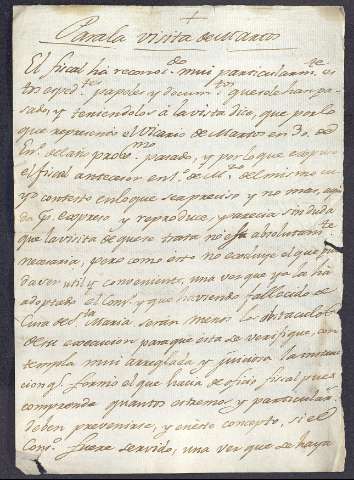 Para la visita de Martos
El fiscal ha reconos.do mui particularm.te es
tos exped.tes papeles y docum.tos que se le han pa
sado, y teniendolos á la vista dice, que por lo
que representó el Vicario de Martos en 30 de
En.o del año prox.mo pasado, y por lo que expuso
el fiscal antecesor en 1.o de M.zo del mismo cu
yo contexto en lo que sea preciso y no mas, aqui
da p.r expreso y reproduce, parecia sin duda
que la visita de que se trata no es absolutam.te
necesaria, pero como esto no excluye el que pue
da ser util y conveniente, una vez que ya la ha
adoptado el Cons.o y que haviendo fallecido el
Cura de S.ta Maria seran menos los obstaculos
de su execucion para que esta se verifique, con
templa mui arreglada y juiciosa la instruc
cion q.e formó el que hacia de oficio fiscal pues
comprende quantos extremos y particular.s
deben prevenirse, y en este concepto, si el
Cons.o fuere servido, una vez que se haya